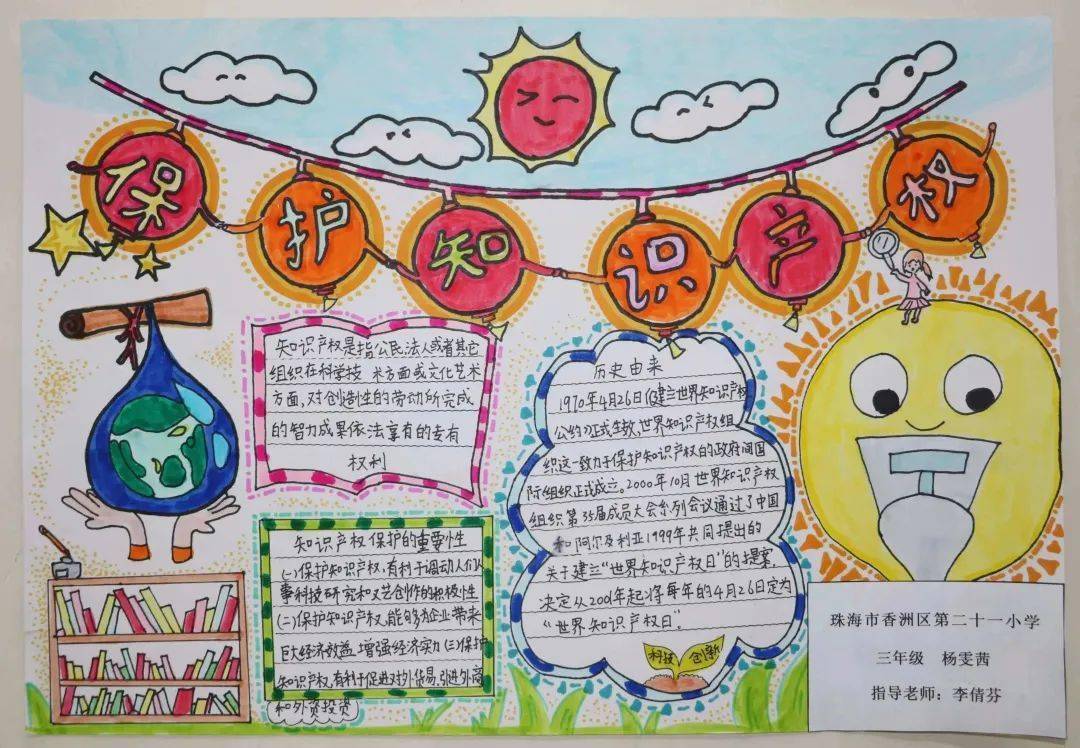 保护知识产权
知识产权是指公民、法人或者其它
组织在科学技 术方面或文化艺术
方面,对创造性的劳动所完成
的智力成果依法享有的专有
权利
知识产权保护的重要性
(一)保护知识产权,有利于调动人们从
事科技研究和文艺创作的积极性
(二)保护知识产权,能够为企业带来
巨大经济效益,增强经济实力(三)保护
知识产权,有利于促进对外贸易,引进外商
和外资投资
历史由来
1970年4月26日《建立世界知识产权
公约》正式生效,世界知识产权组
织这一致力于保护知识产权的政府间国
际组织正式成立。2000年10月世界知识产权
组织第35届成员大会系列会议通过了中国
和阿尔及利亚1999年共同提出的
关于建立“世界知识产权日”的提案,
决定从2001年起将每年的4月26日定为
“世界知识产权日”。
科技 创新
珠海市香洲区第二十一小学
三年级 杨雯茜
指导老师:李倩芬